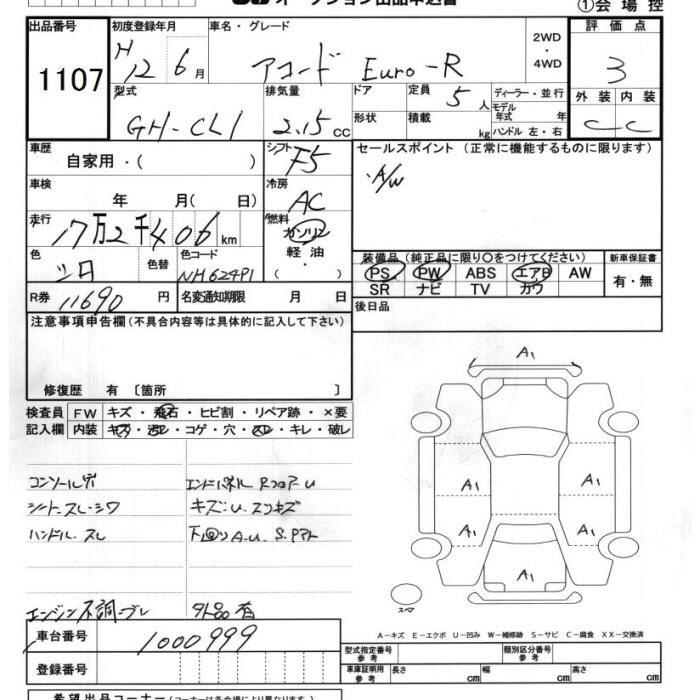 ①会場控
出品番号
1107
初度登録年月
H 12 6月
車名・グレード
アコード Euro-R
2WD
・
4WD
評価点
3
外装 内装
C C
型式
GH-CL1
排気量
2.15 CC
ドア
形状
定員
5人
積載
kg
ディーラー・並行
モデル年式 年
ハンドル 左・右
車歴
自家用・( )
シフト
F5
セールスポイント (正常に機能するものに限ります)
A/W
車検
年 月( 日)
冷房
AC
走行
17万2千406km
燃料
ガソリン
軽油
・
( )
色
シロ
色替
色コード
NH624P1
装備品 (純正品に限り○をつけてください)
PS PW ABS エアB AW
SR ナビ TV カワ
新車保証書
有・無
R券
11690円
名変通知期限 月 日
後日品
注意事項申告欄 (不具合内容等は具体的に記入して下さい)
修復歴 有 〔箇所 〕
検査員記入欄
FW キズ・飛石・ヒビ割・リペア跡・×要
内装 キズ・汚レ・コゲ・穴・スレ・キレ・破レ
コンソール穴
シートスレ・シワ
ハンドル スレ
エンドパネル Rフロア U
キズ:U.スリキズ
下回りA.U.S.Pアト
エンジン不調・ブレ
外品有
A1
A1
A1
A1
A1
A1
スペア
A−キズ E−エクボ U−凹み W−補修跡 S−サビ C−腐食 XX−交換済
車台番号
1000999
登録番号
型式指定番号
参考
類別区分番号
参考
車庫証明用
参考
長さ cm 幅 cm 高さ cm
希望出品コーナー (コーナーは各会場により異なります。)